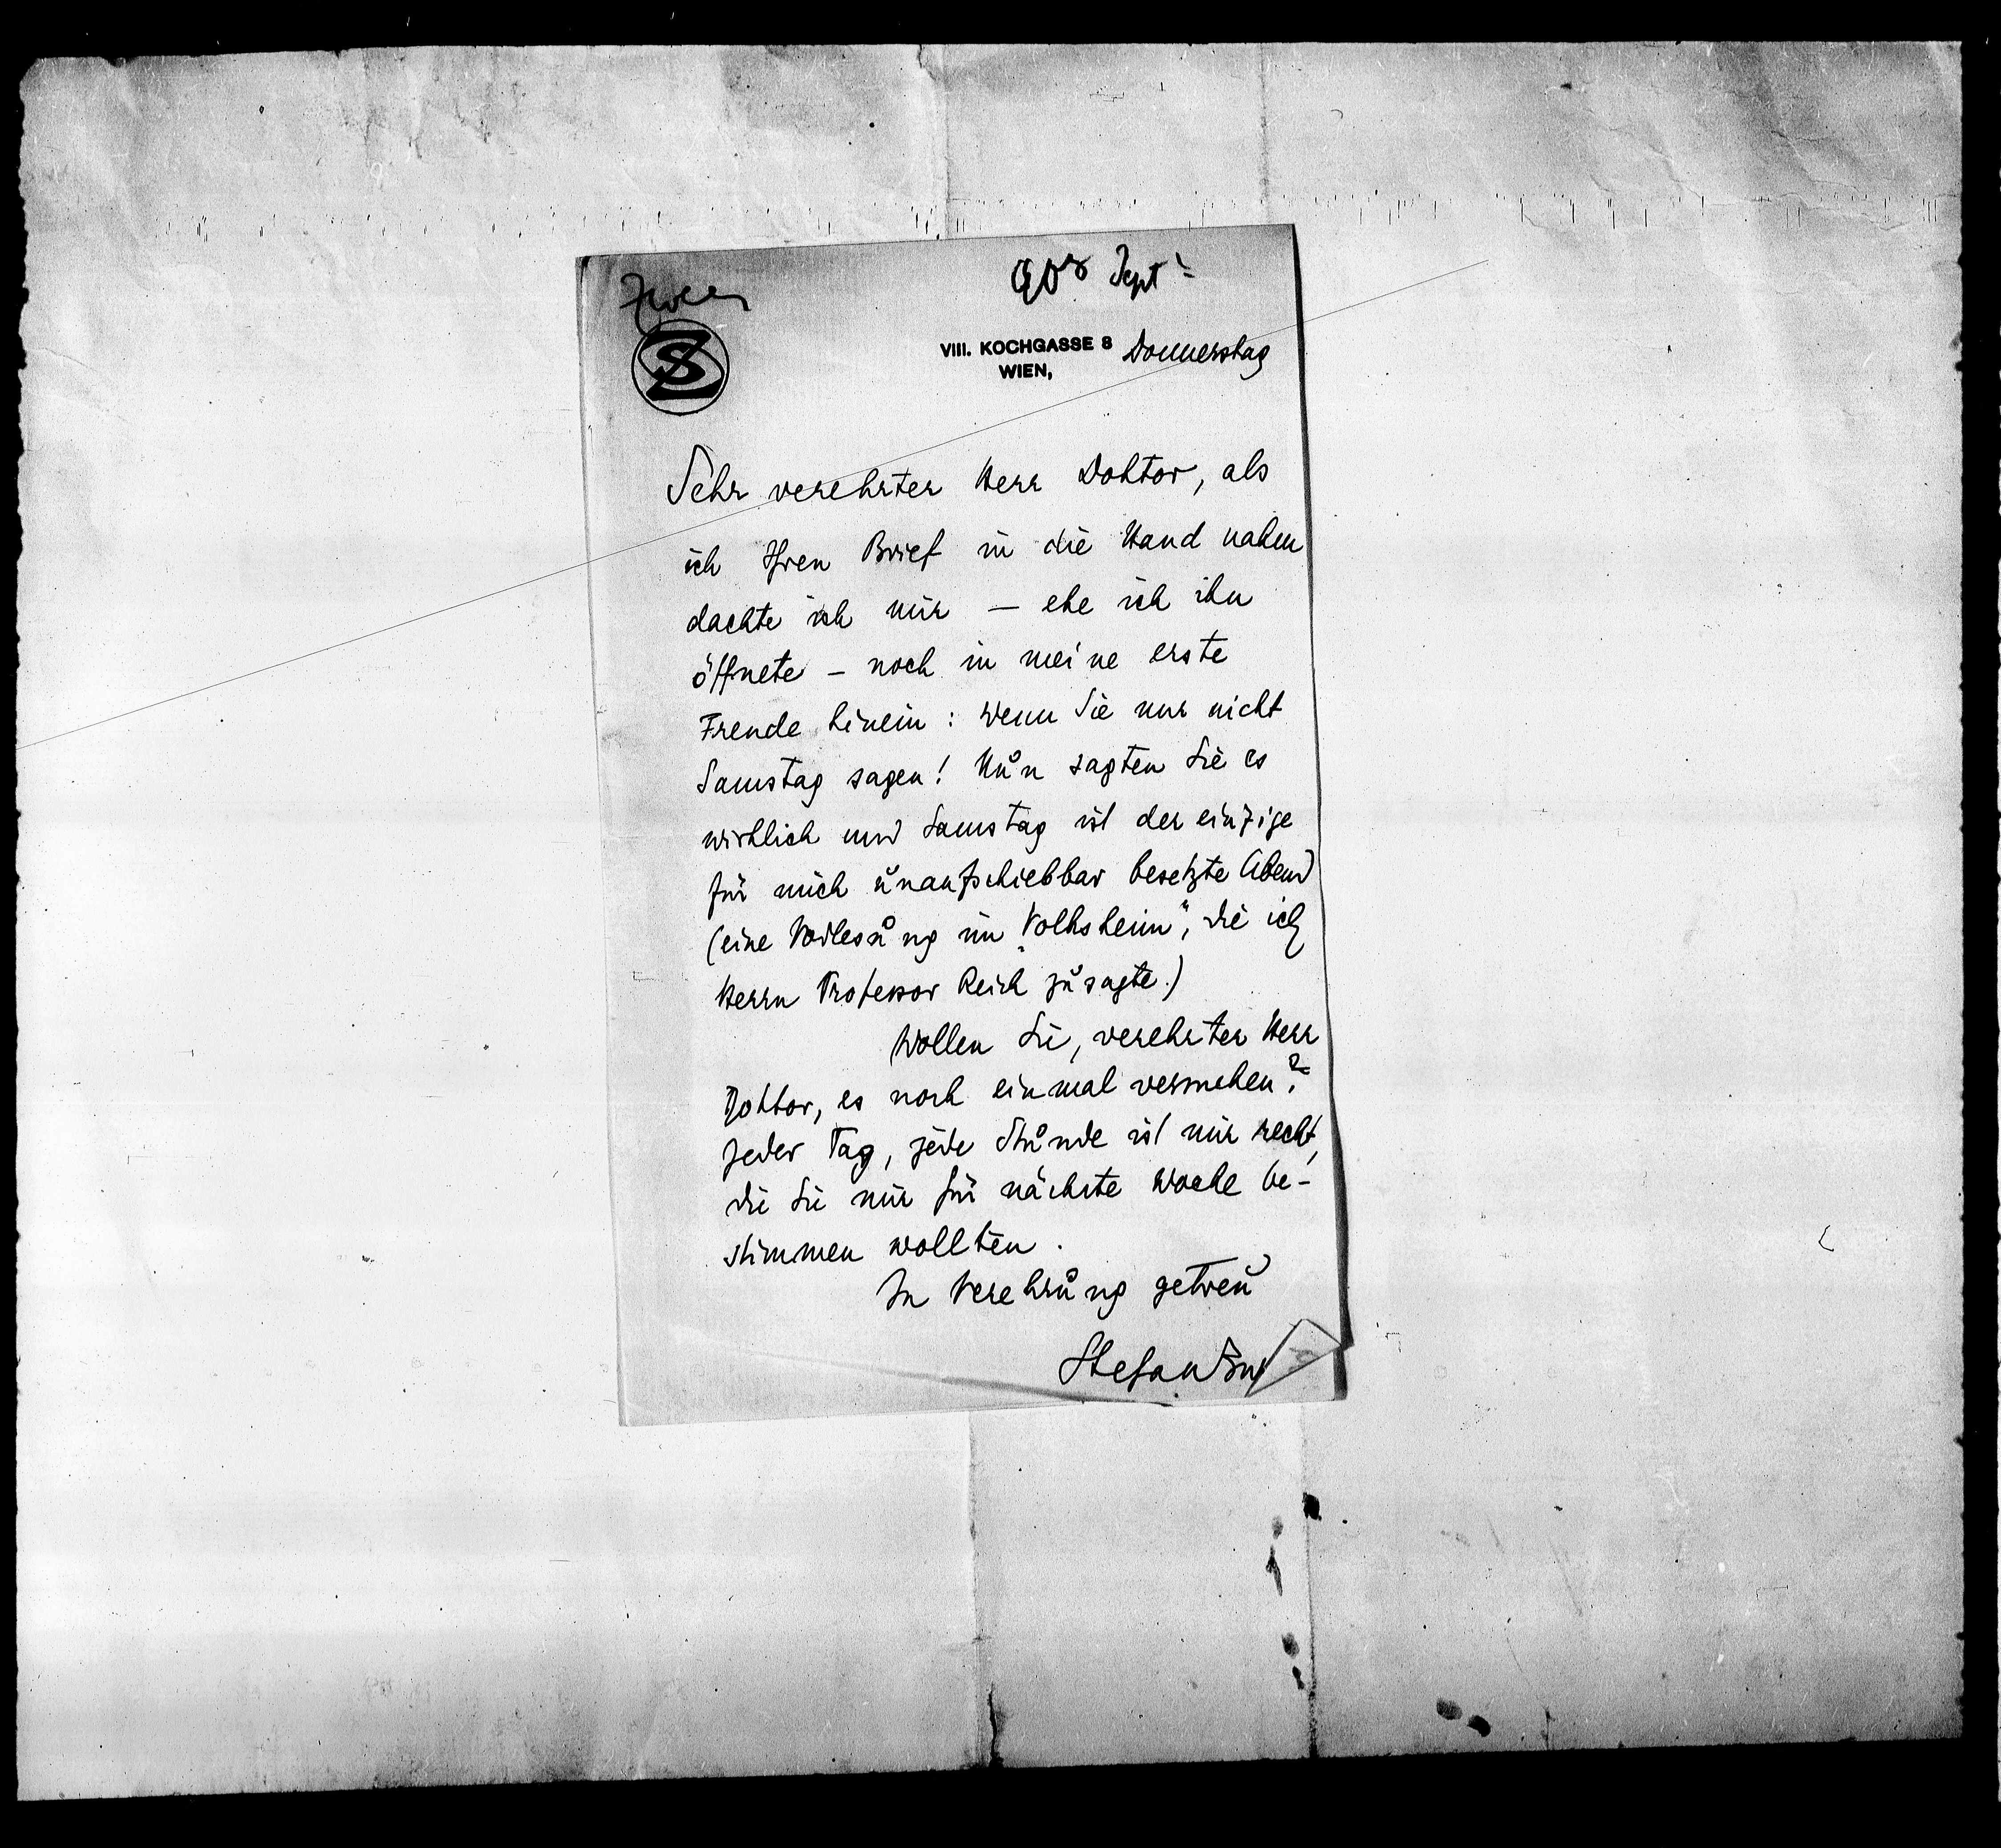 Zweig
Sept
SZ
VIII. KOCHGASSE 8 Donnerstag
WIEN,
Sehr verehrter Herr Doktor, als
ich Ihren Brief in die Hand nahm
dachte ich mir – ehe ich ihn
öffnete – noch in meine erste
Freude hinein: wenn Sie nur nicht
Samstag sagen! Nun sagten Sie es
wirklich und Samstag ist der einzige
für mich unaufschiebbar besetzte Abend
(eine Vorlesung im „Volksheim", die ich
Herrn Professor Reich zusagte.)
Wollen Sie, verehrter Herr
Doktor, es noch einmal versuchen?
Jeder Tag, jede Stunde ist mir recht,
die Sie mir für nächste Woche be-
stimmen wollten.
In Verehrung getreu
Stefan Zw